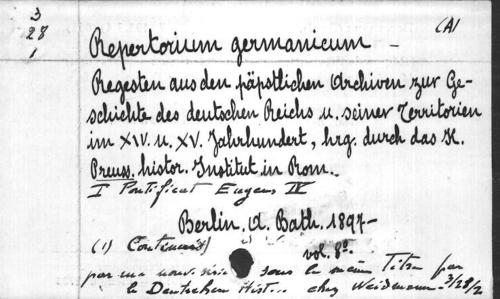 3
28
1
(A)
Repertorium germanicum –
Regesten aus den päpstlichen Archiven zur Ge-
schichte des deutschen Reichs u. seiner Territorien
im XIV. u. XV. Jahrhundert, hrg. durch das K.
Preuss. histor. Institut in Rom.
I Pontificat Eugens IV
Berlin. A. Bath. 1897–
vol. 8º.
(1)
par une nouv. sous le même Titre par
le Deutschen Hist... chez Weidmann – 3/28/2